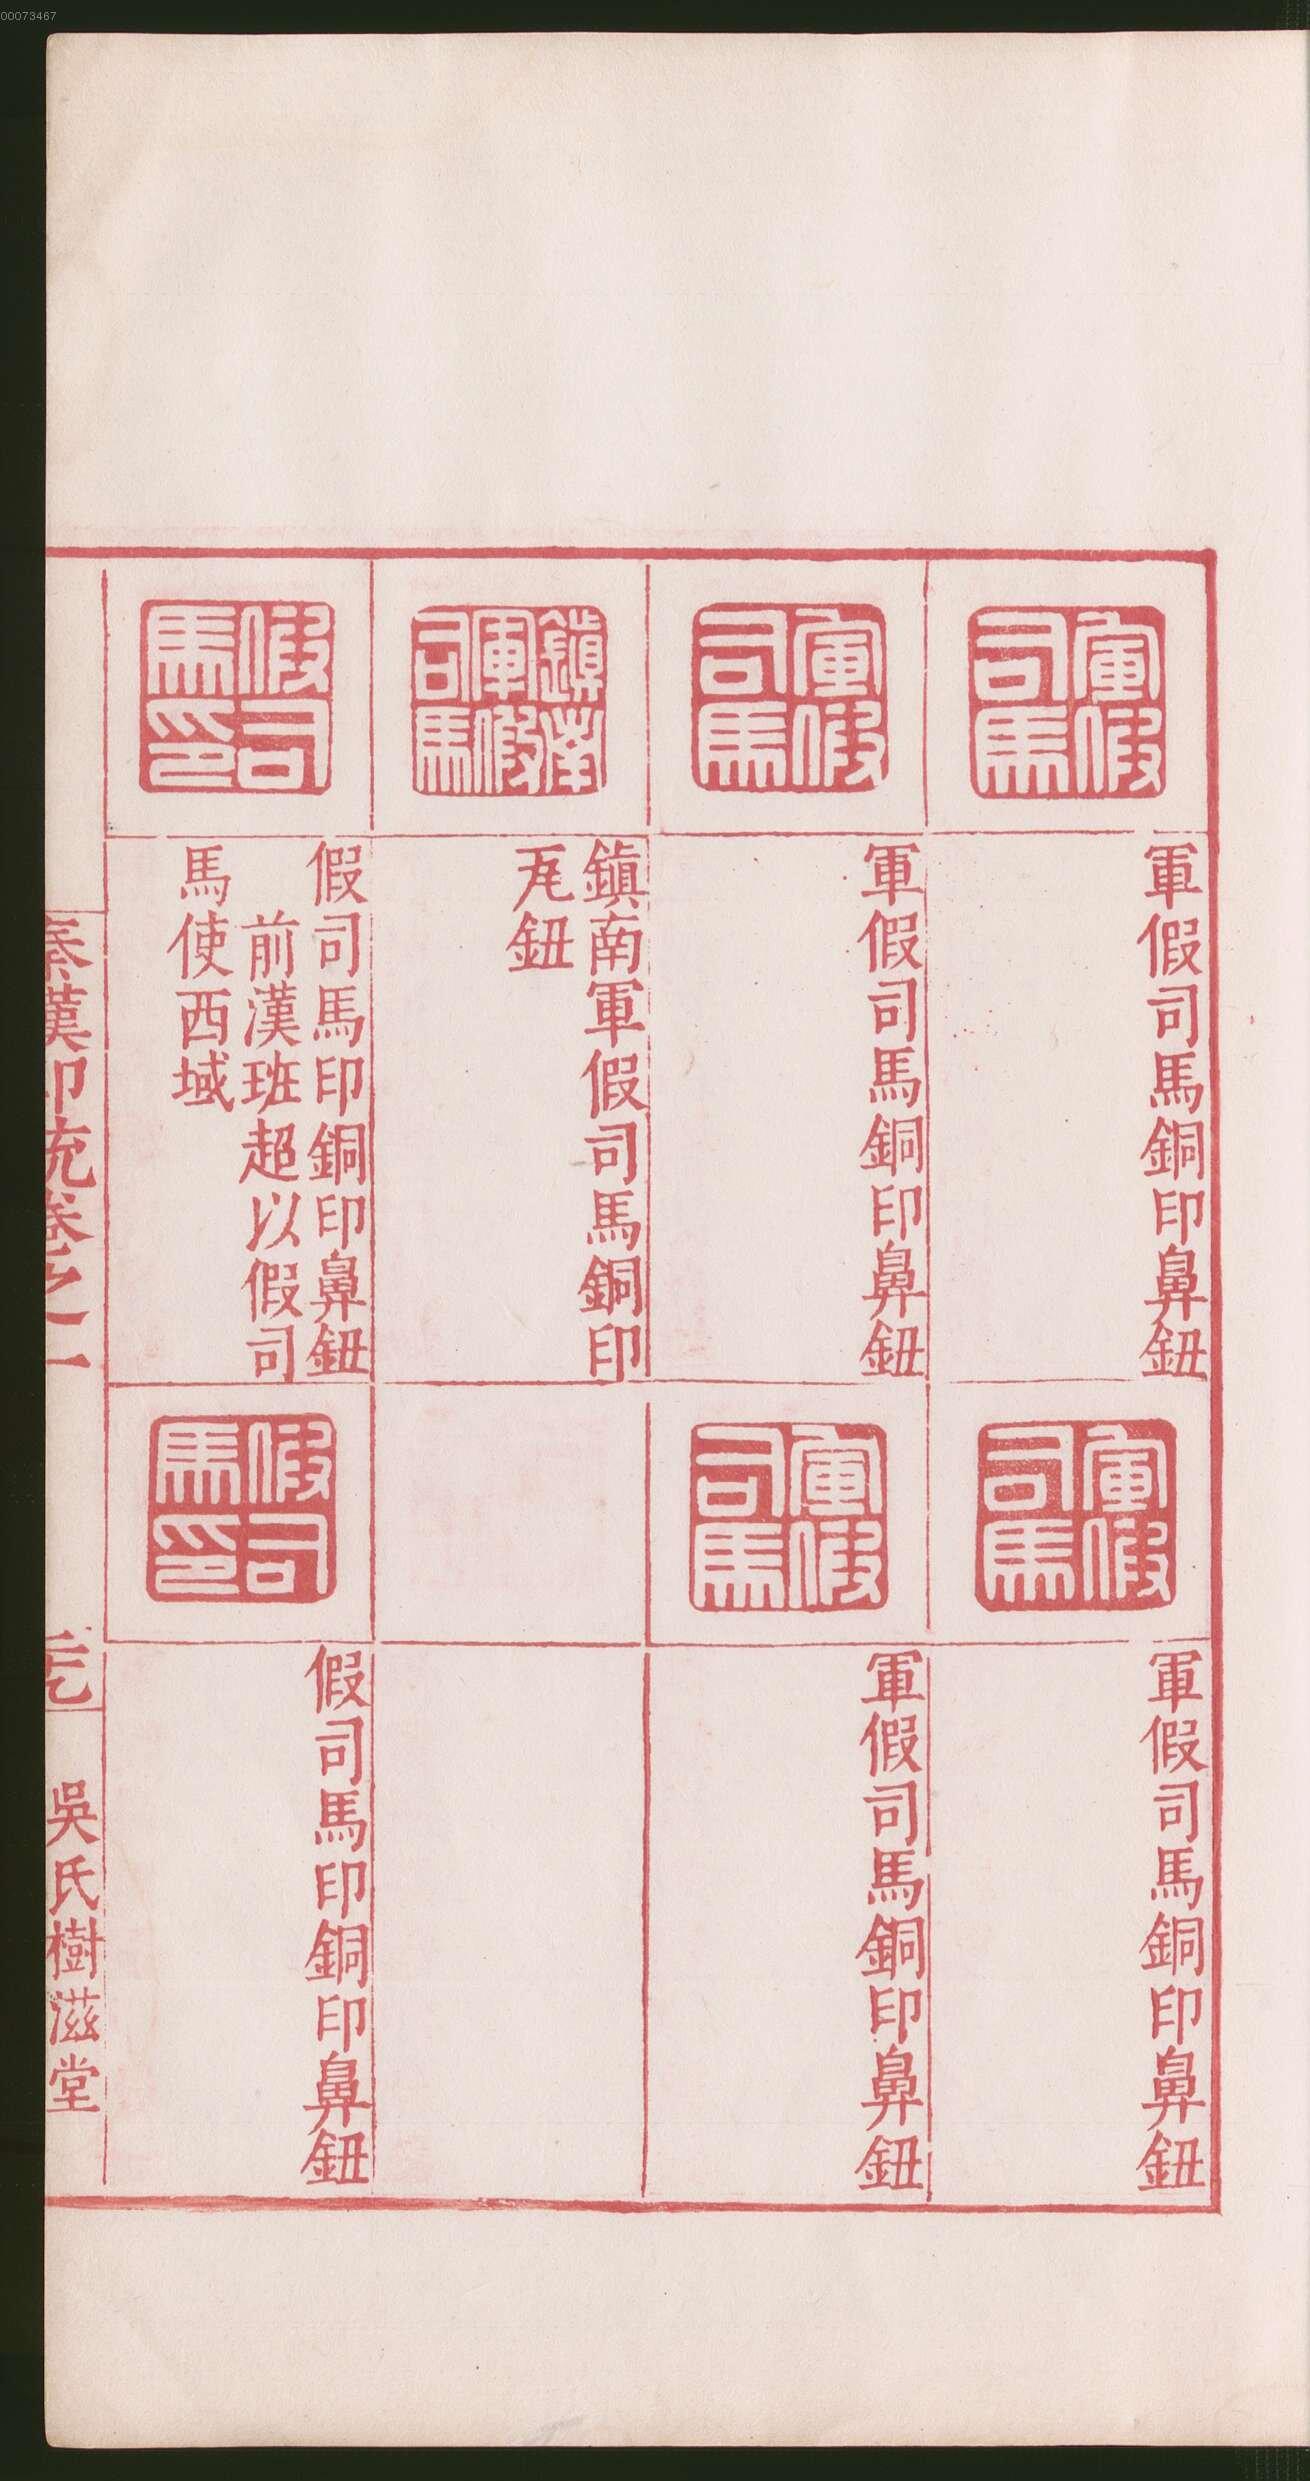 00073467
軍假司馬
軍假司馬銅印鼻鈕
軍假司馬
軍假司馬銅印鼻鈕
軍假司馬
軍假司馬銅印鼻鈕
軍假司馬
軍假司馬銅印鼻鈕
鎮南軍假司馬
鎮南軍假司馬銅印
瓦鈕
假司馬印
假司馬印銅印鼻鈕
前漢班超以假司
馬使西域
假司馬印
假司馬印銅印鼻鈕
秦漢印統卷之一
吳氏樹滋堂